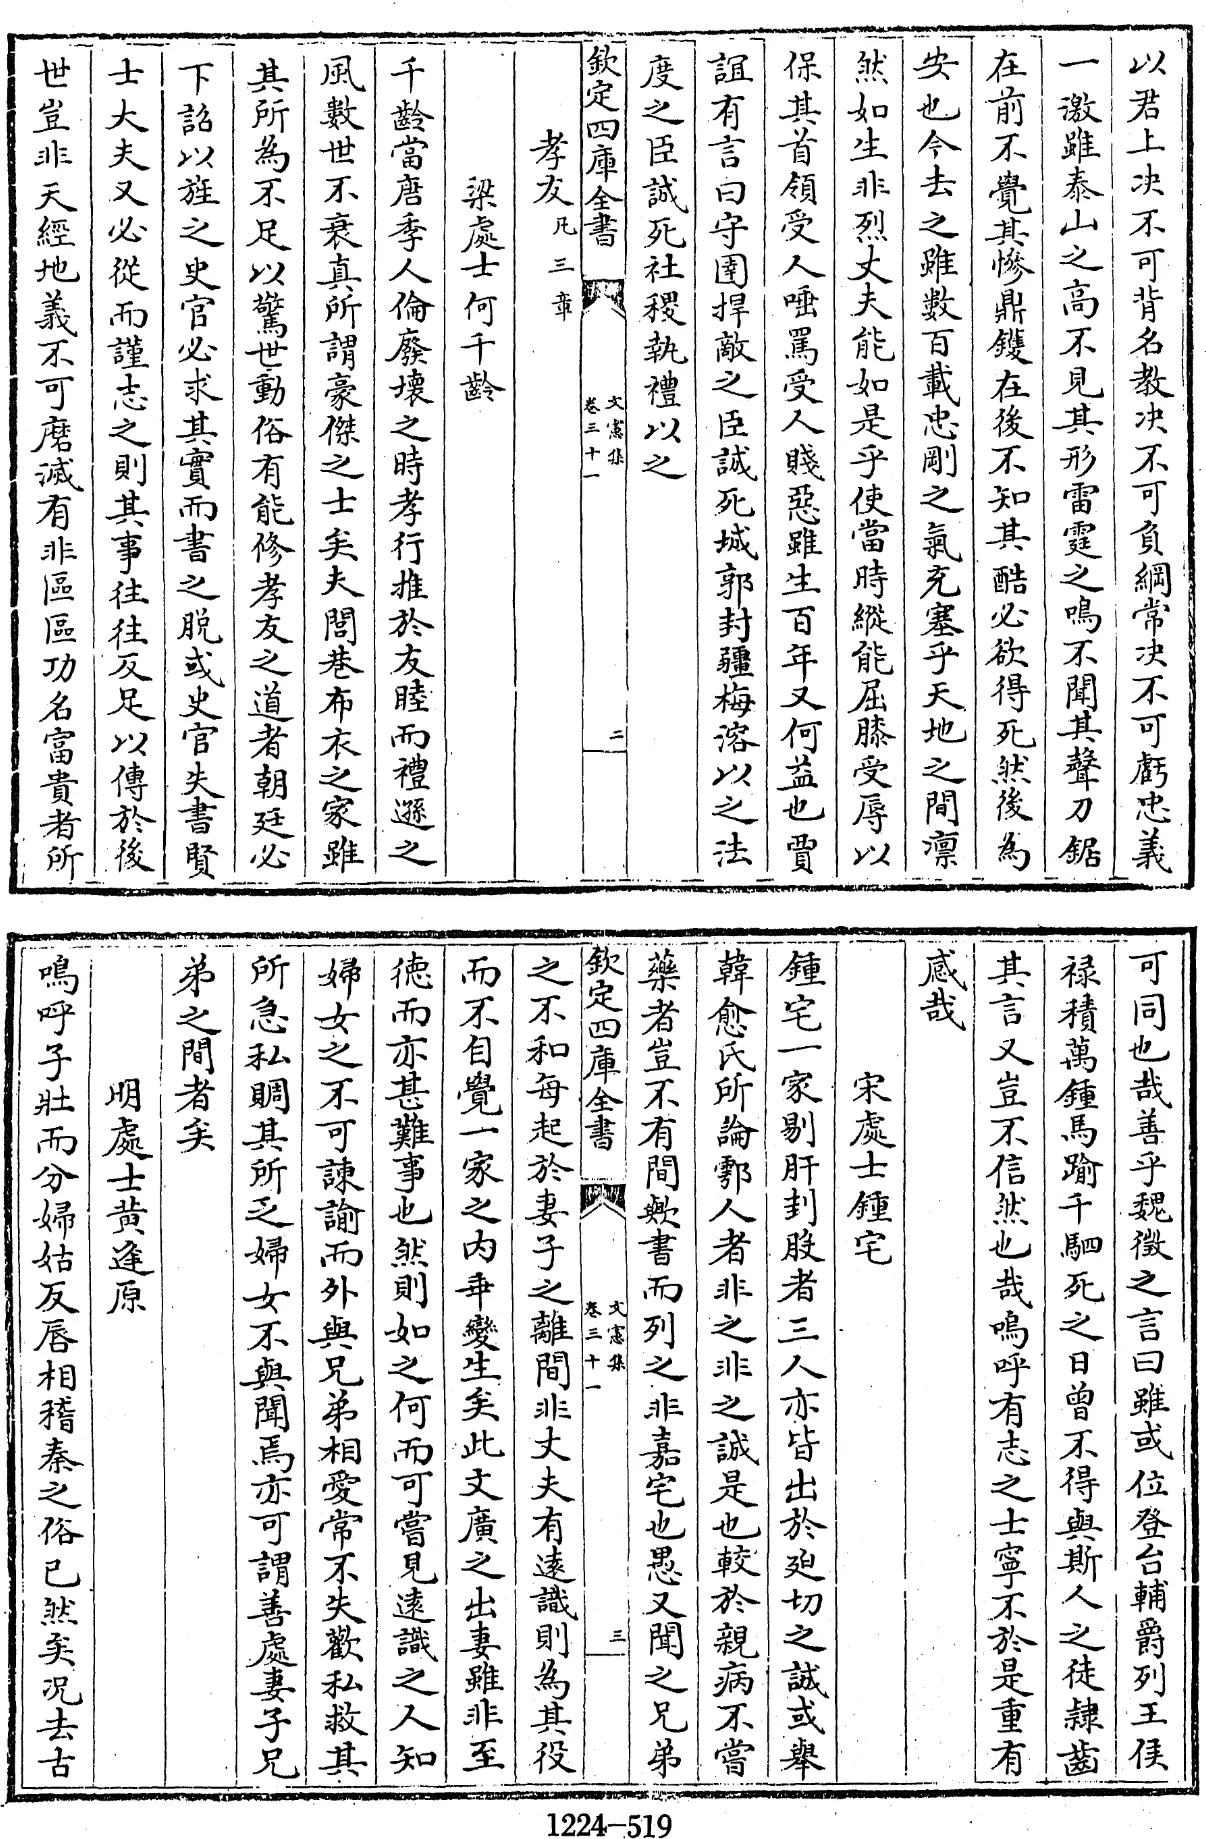 以君上决不可背名教决不可負綱常决不可虧忠義
一激雖泰山之高不見其形雷霆之鳴不聞其聲刀鋸
在前不覺其慘鼎鑊在後不知其酷必欲得死然後為
安也今去之雖數百載忠剛之氣充塞乎天地之間凛
然如生非烈丈夫能如是乎使當時縱能屈膝受辱以
保其首領受人唾罵受人賤惡雖生百年又何益也賈
誼有言曰守圉捍敵之臣誠死城郭封疆梅溶以之法
度之臣誠死社稷執禮以之
欽定四庫全書
文憲集
卷三十一
二
孝友凡三章
梁處士何千齡
千齡當唐季人倫廢壞之時孝行推於友睦而禮遜之
風數世不衰真所謂豪傑之士矣夫閭巷布衣之家雖
其所為不足以驚世動俗有能修孝友之道者朝廷必
下詔以旌之史官必求其實而書之脱或史官失書賢
士大夫又必從而謹志之則其事往往反足以傳於後
世豈非天經地義不可磨滅有非區區功名富貴者所
可同也哉善乎魏徵之言曰雖或位登台輔爵列王侯
禄積萬鍾馬踰千駟死之日曾不得與斯人之徒隷齒
其言又豈不信然也哉嗚呼有志之士寧不於是重有
感哉
宋處士鍾宅
鍾宅一家剔肝刲股者三人亦皆出於廹切之誠或舉
韓愈氏所論鄠人者非之非之誠是也較於親病不嘗
藥者豈不有間歟書而列之非嘉宅也愚又聞之兄弟
欽定四庫全書
文憲集
卷三十一
三
之不和每起於妻子之離間非丈夫有遠識則為其役
而不自覺一家之内乖變生矣此文廣之出妻雖非至
德而亦甚難事也然則如之何而可嘗見遠識之人知
婦女之不可諫諭而外與兄弟相愛常不失歡私救其
所急私賙其所乏婦女不與聞焉亦可謂善處妻子兄
弟之間者矣
明處士黄逢原
嗚呼子壯而分婦姑反唇相稽秦之俗已然矣况去古
1224-519